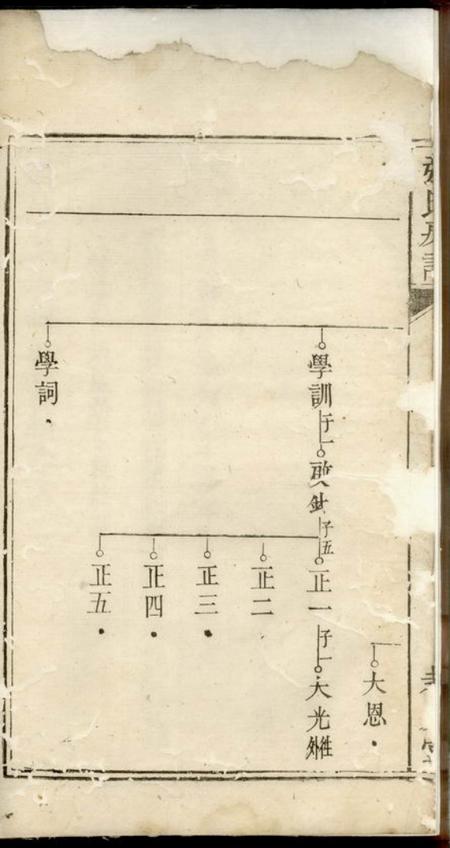 氏房譜
大恩
學訓 子一
啟針 子五
正一 子一
大光 往外
正二
正三
正四
正五
學詞